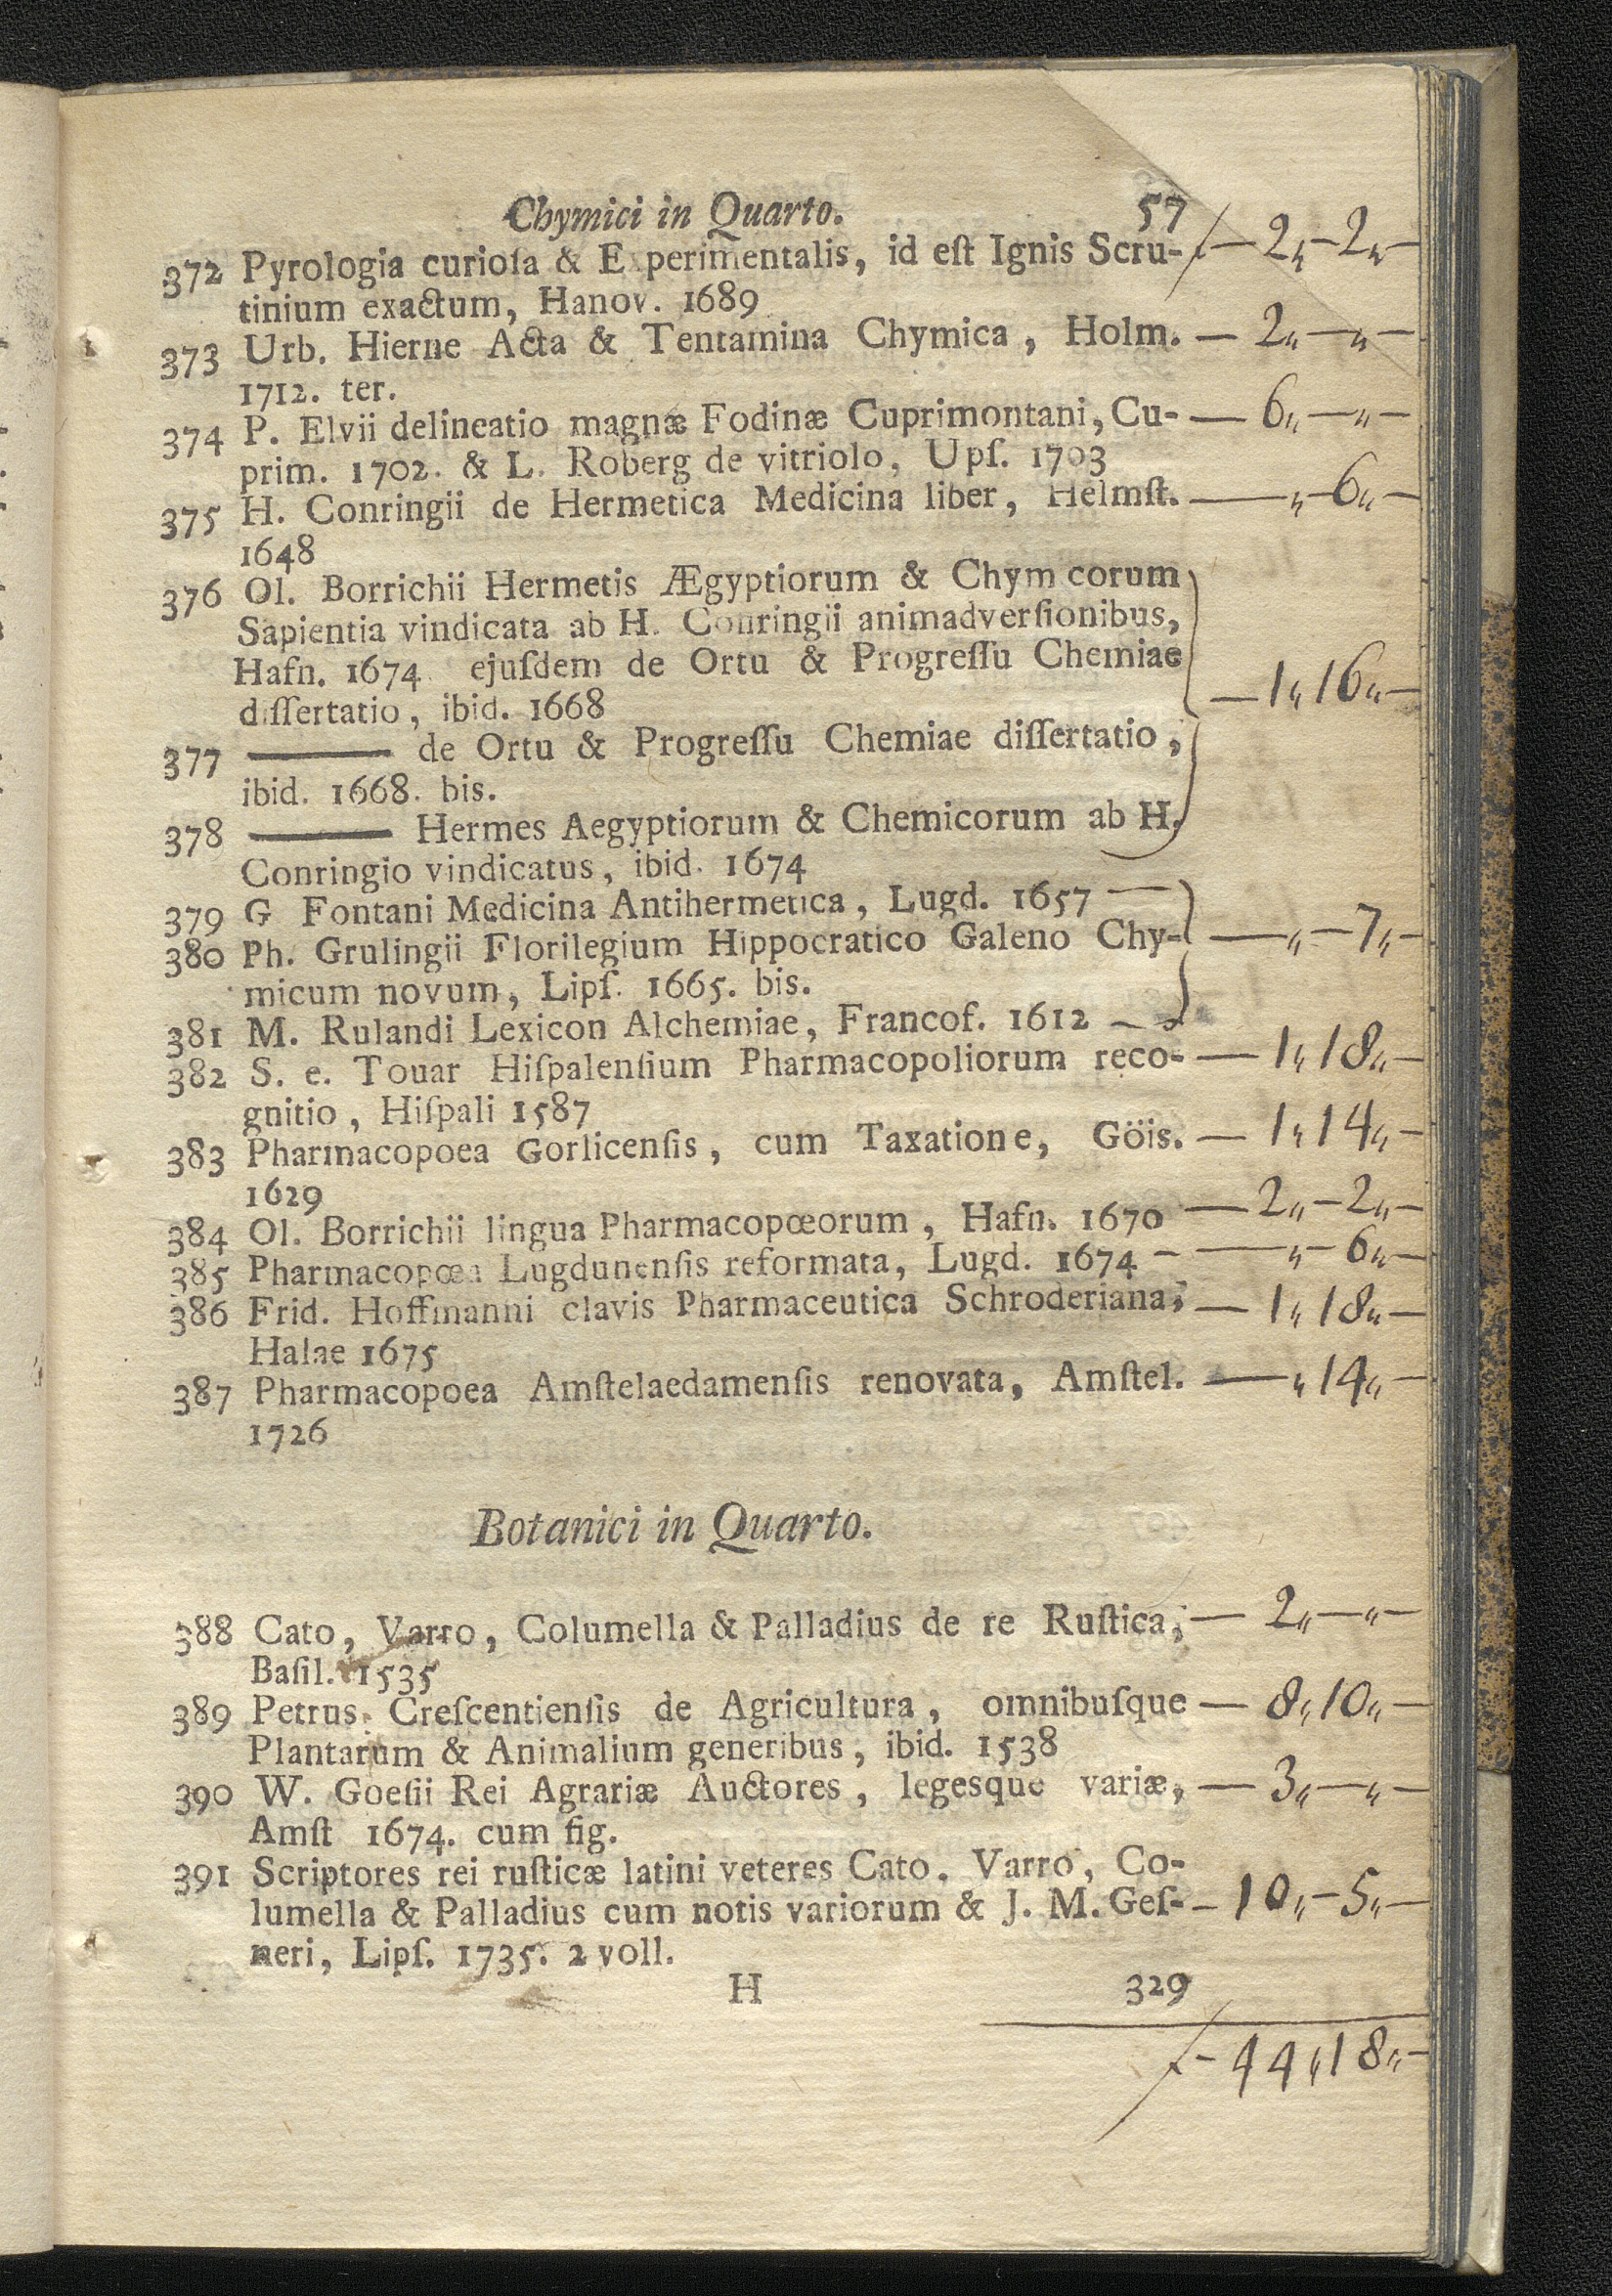 Chymici in Quarto. 57
372 Pyrologia curioſa & Experimentalis, id eſt Ignis Scru- ƒ — 2„ — 2„ —
tinium exactum, Hanov. 1689
373 Urb. Hierne Acta & Tentamina Chymica, Holm. — 2„ — „ —
1712. ter.
374 P. Elvii delineatio magnæ Fodinæ Cuprimontani, Cu- — 6„ — „ —
prim. 1702. & L. Roberg de vitriolo, Upſ. 1703
375 H. Conringii de Hermetica Medicina liber, Helmſt. — „ — 6„ —
1648
376 Ol. Borrichii Hermetis Ægyptiorum & Chym corum
Sapientia vindicata ab H. Conringii animadverſionibus,
Hafn. 1674. ejuſdem de Ortu & Progreſſu Chemiae
diſſertatio, ibid. 1668 — 1„ 16„ —
377 ——— de Ortu & Progreſſu Chemiae diſſertatio,
ibid. 1668. bis.
378 ——— Hermes Aegyptiorum & Chemicorum ab H.
Conringio vindicatus, ibid. 1674
379 G Fontani Medicina Antihermetica, Lugd. 1657 —
380 Ph. Grulingii Florilegium Hippocratico Galeno Chy- — „ — 7„ —
micum novum, Lipſ. 1665. bis.
381 M. Rulandi Lexicon Alchemiae, Francof. 1612 —
382 S. e. Touar Hiſpalenſium Pharmacopoliorum reco- — 1„ 18„ —
gnitio, Hiſpali 1587
383 Pharmacopoea Gorlicenſis, cum Taxatione, Göis. — 1„ 14„ —
1629
384 Ol. Borrichii lingua Pharmacopœorum, Hafn. 1670 — 2„ — 2„ —
385 Pharmacopœa Lugdunenſis reformata, Lugd. 1674 — „ — 6„ —
386 Frid. Hoffmanni clavis Pharmaceutica Schroderiana, — 1„ 18„ —
Halae 1675
387 Pharmacopoea Amſtelaedamenſis renovata, Amſtel. — „ 14„ —
1726
Botanici in Quarto.
388 Cato, Varro, Columella & Palladius de re Ruſtica, — 2„ — „ —
Baſil. 1535
389 Petrus Creſcentienſis de Agricultura, omnibuſque — 8„ 10„ —
Plantarum & Animalium generibus, ibid. 1538
390 W. Goeſii Rei Agrariæ Auctores, legesque variæ, — 3„ — „ —
Amſt 1674. cum fig.
391 Scriptores rei ruſticæ latini veteres Cato. Varro, Co-
lumella & Palladius cum notis variorum & J. M. Geſ- — 10„ — 5„ —
neri, Lipſ. 1735. 2 voll.
H 329
ƒ — 44„ 18„ —